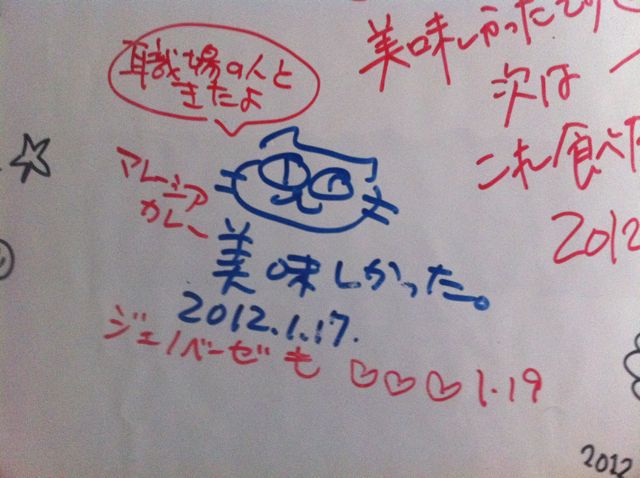 職場の人と
きたよ
マレーシア
カレー
美味しかった。
2012.1.17.
ジェノベーゼも ♡♡♡ 1.19
美味しかったです
次は
これ食べた
2012
2012